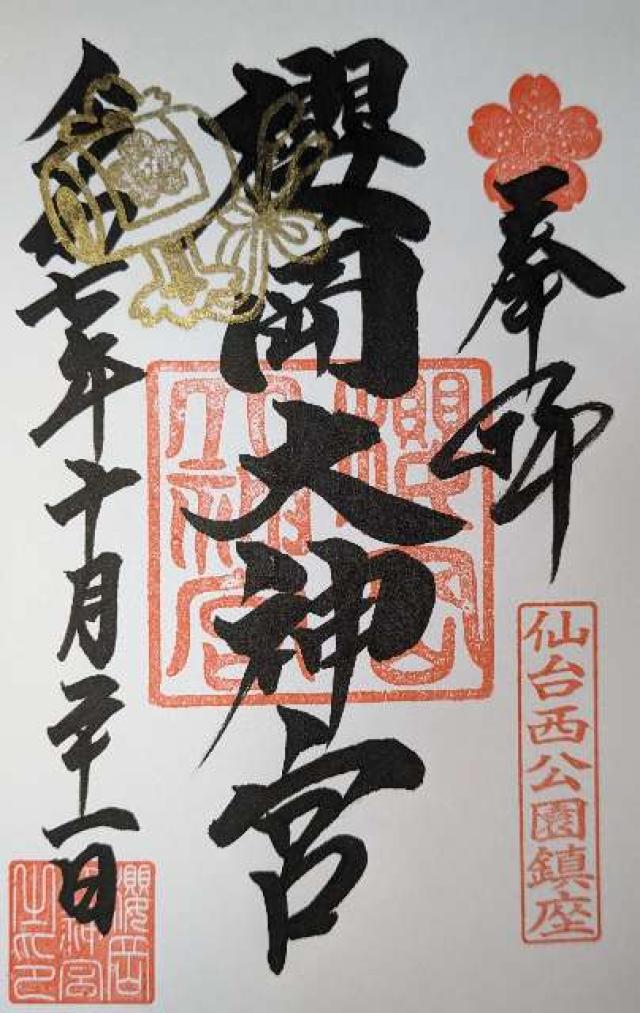 奉拝
仙台西公園鎮座
櫻岡大神宮
櫻岡大神宮
令和七年十月二十一日
櫻岡大神宮之印